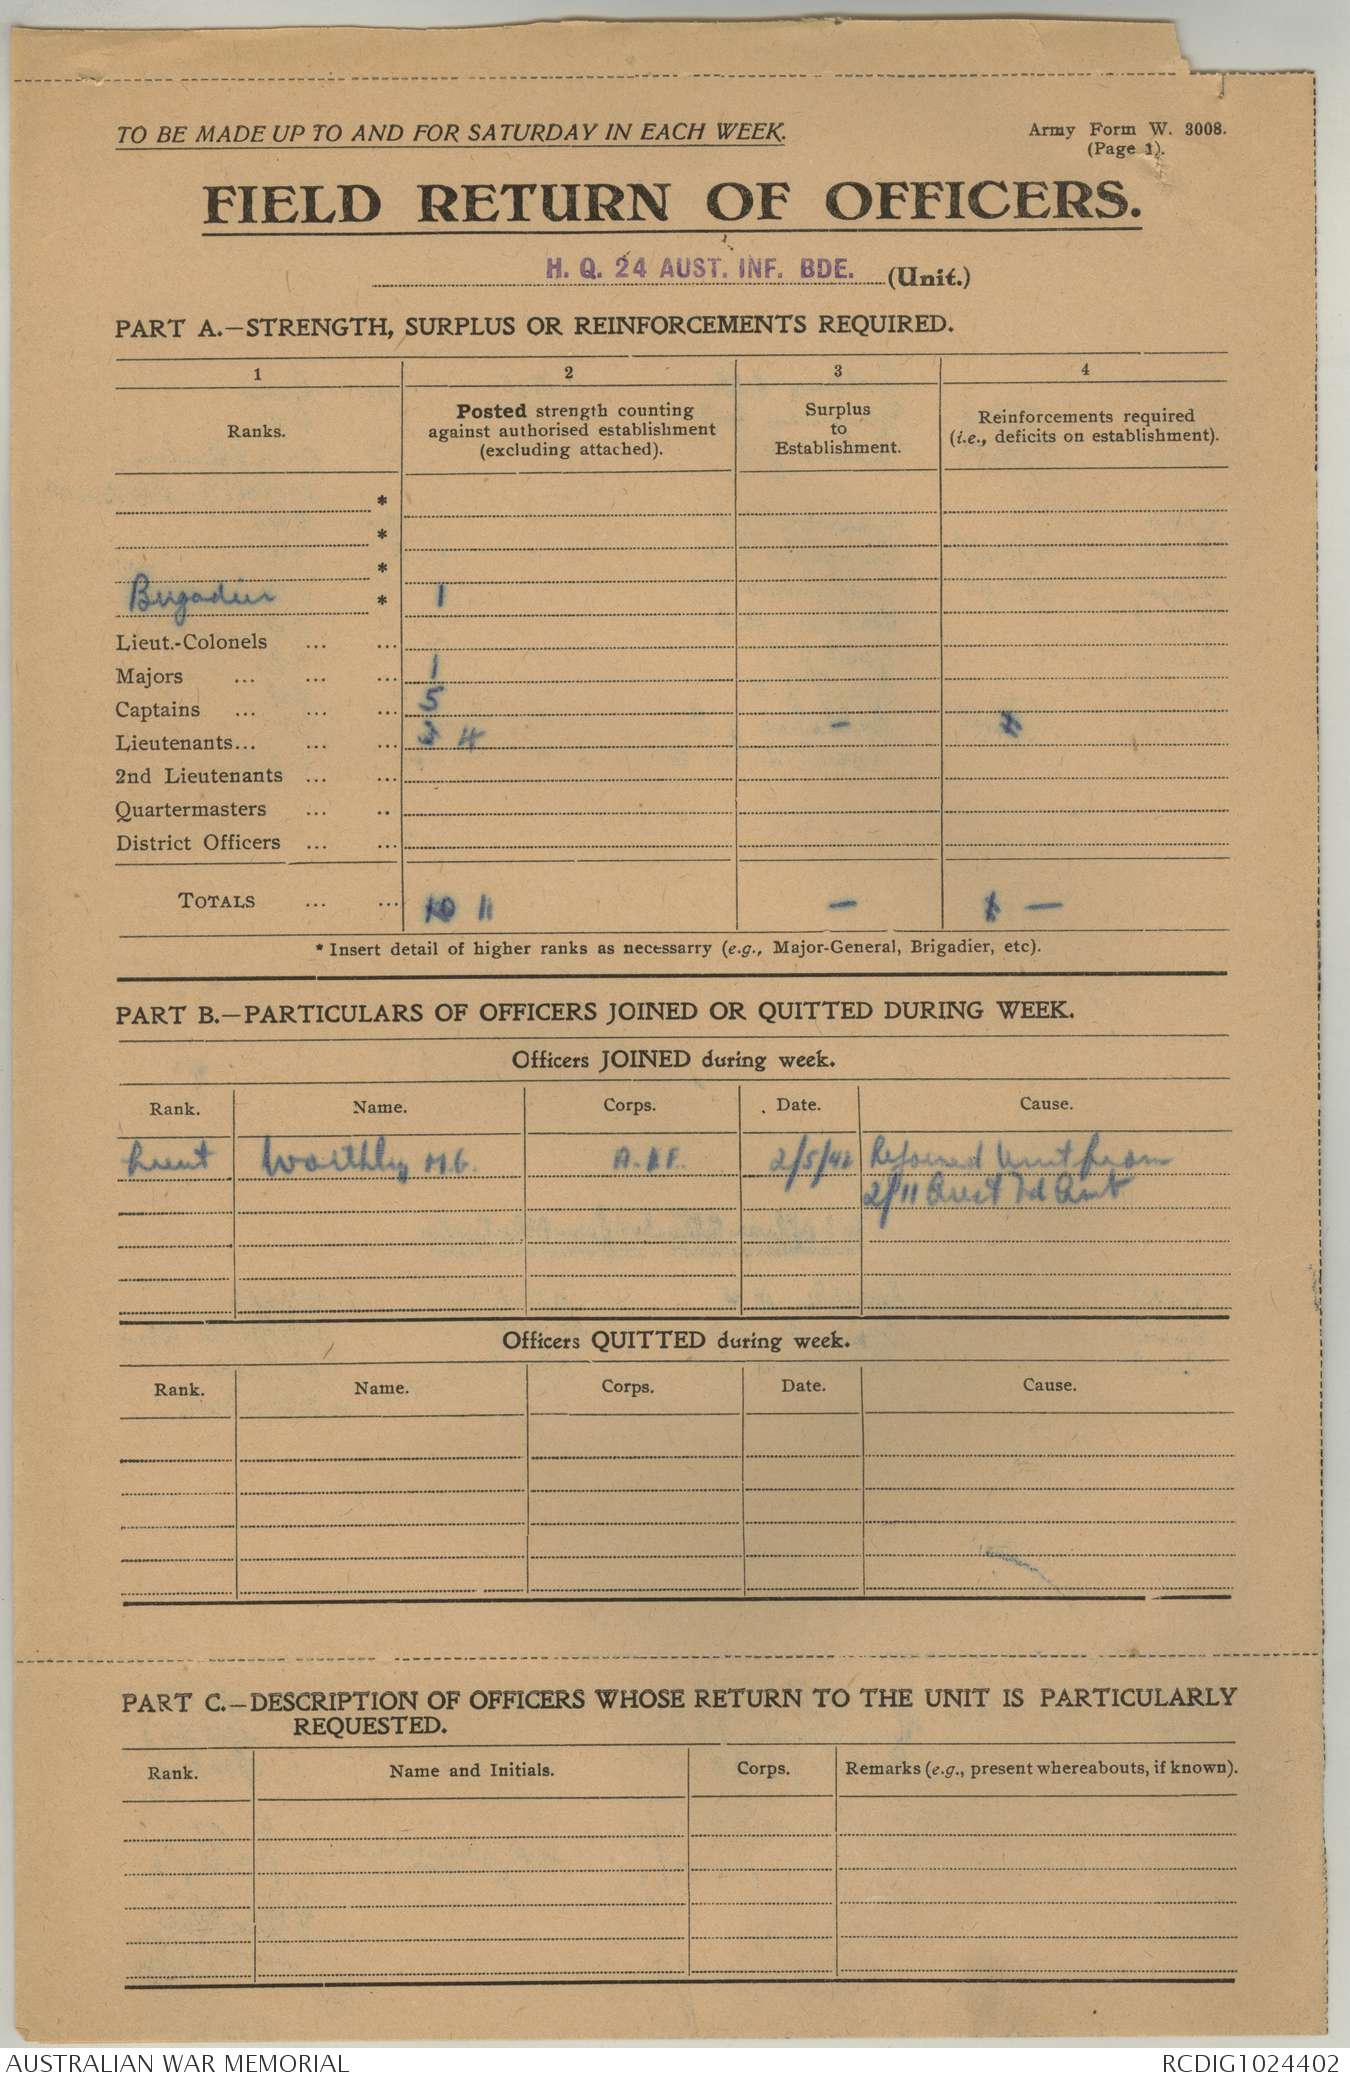 TO BE MADE UP TO AND FOR SATURDAY IN EACH WEEK.
Army Form W. 3008.
(Page 1).
FIELD RETURN OF OFFICERS.
H. Q. 24 AUST. INF. BDE. (Unit.)
PART A.—STRENGTH, SURPLUS OR REINFORCEMENTS REQUIRED.
1 2 3 4
Ranks.
Posted strength counting
against authorised establishment
(excluding attached).
Surplus
to
Establishment.
Reinforcements required
(i.e., deficits on establishment).
*
*
*
Brigadier * 1
Lieut.-Colonels ... ...
Majors ... ... ... 1
Captains ... ... ... 5
Lieutenants... ... ... 3 4 - 1
2nd Lieutenants ... ...
Quartermasters ... ..
District Officers ... ...
TOTALS ... ... 10 11 — 1 —
* Insert detail of higher ranks as necessarry (e.g., Major-General, Brigadier, etc).
PART B.—PARTICULARS OF OFFICERS JOINED OR QUITTED DURING WEEK.
Officers JOINED during week.
Rank. Name. Corps. Date. Cause.
Lieut Worthly M.G. A.I.F. 2/5/42 Rejoined Unit from
2/11 Aust Fd Amb
Officers QUITTED during week.
Rank. Name. Corps. Date. Cause.
PART C.—DESCRIPTION OF OFFICERS WHOSE RETURN TO THE UNIT IS PARTICULARLY
REQUESTED.
Rank. Name and Initials. Corps. Remarks (e.g., present whereabouts, if known).
AUSTRALIAN WAR MEMORIAL
RCDIG1024402